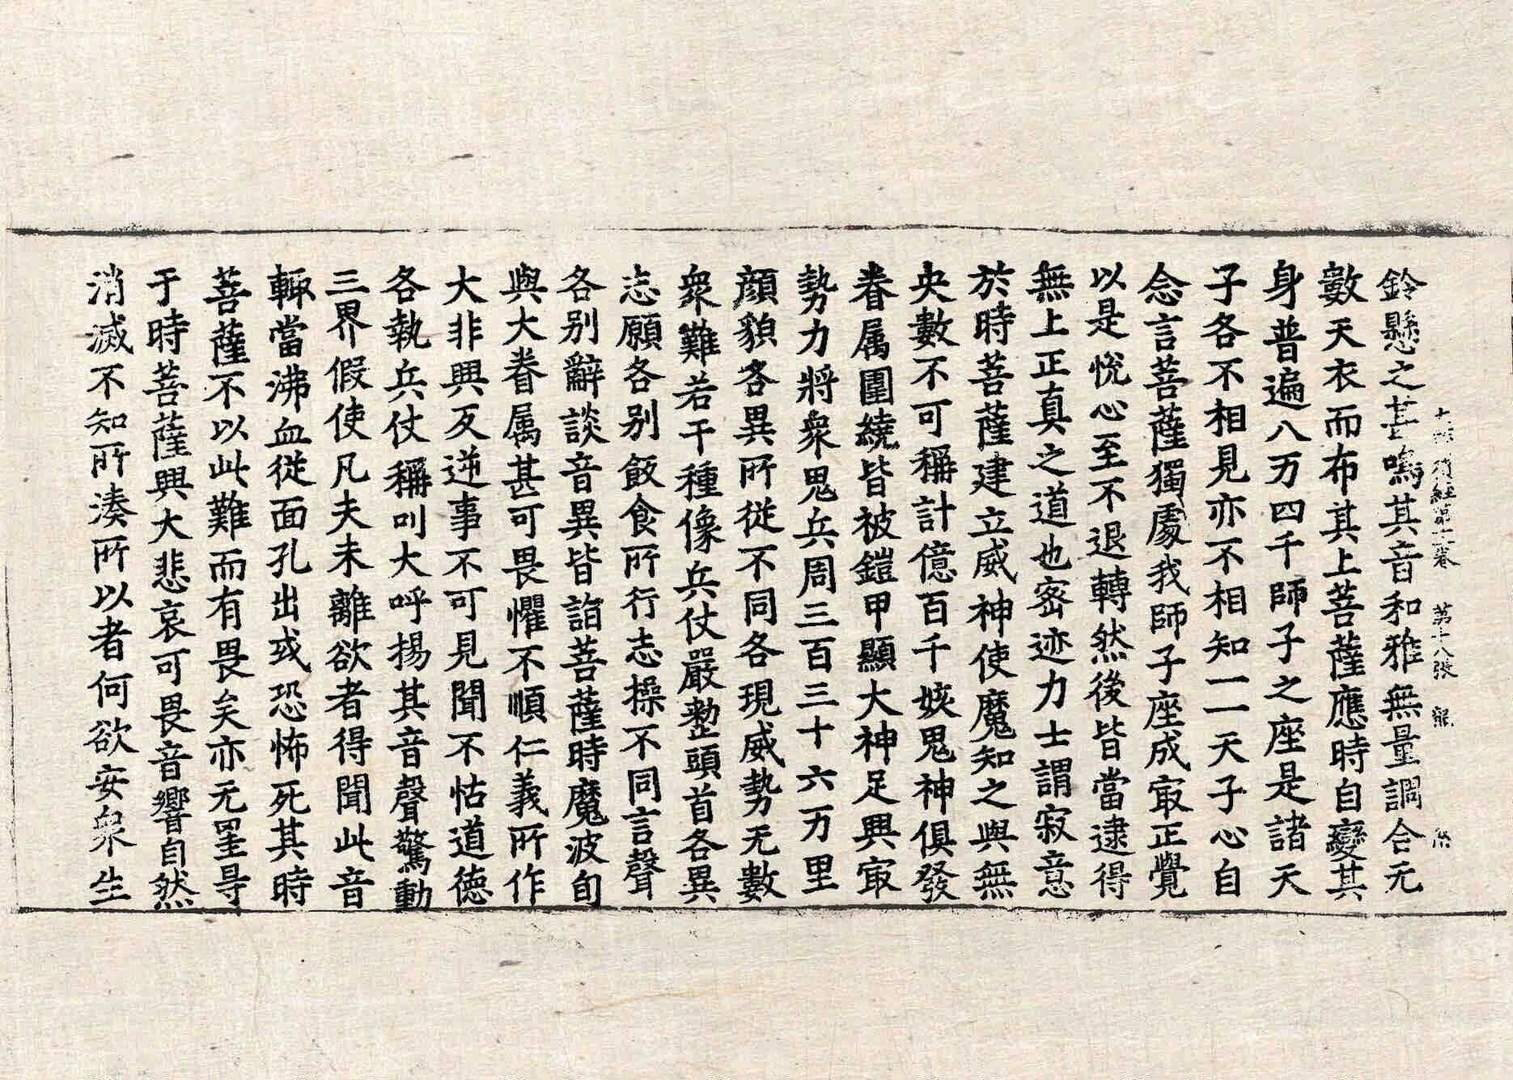 大寶積經第十卷 第十八張 龍
鈴懸之甚鳴其音和雅無量調合无
數天衣而布其上菩薩應時自變其
身普遍八万四千師子之座是諸天
子各不相見亦不相知一一天子心自
念言菩薩獨處我師子座成㝡正覺
以是悅心至不退轉然後皆當逮得
無上正真之道也密迹力士謂寂意
於時菩薩建立威神使魔知之與無
央數不可稱計億百千姟鬼神俱發
眷属圍繞皆被鎧甲顯大神足興㝡
勢力將衆鬼兵周三百三十六万里
顏貌各異所從不同各現威勢无數
衆難若干種像兵仗嚴整頭首各異
志願各別飯食所行志操不同言聲
各別辭談音異皆詣菩薩時魔波旬
與大眷属甚可畏懼不順仁義所作
大非興反逆事不可見聞不怙道德
各執兵仗稱叫大呼揚其音聲驚動
三界假使凡夫未離欲者得聞此音
輙當沸血從面孔出或恐怖死其時
菩薩不以此難而有畏矣亦无罣㝵
于時菩薩興大悲哀可畏音響自然
消滅不知所湊所以者何欲安衆生